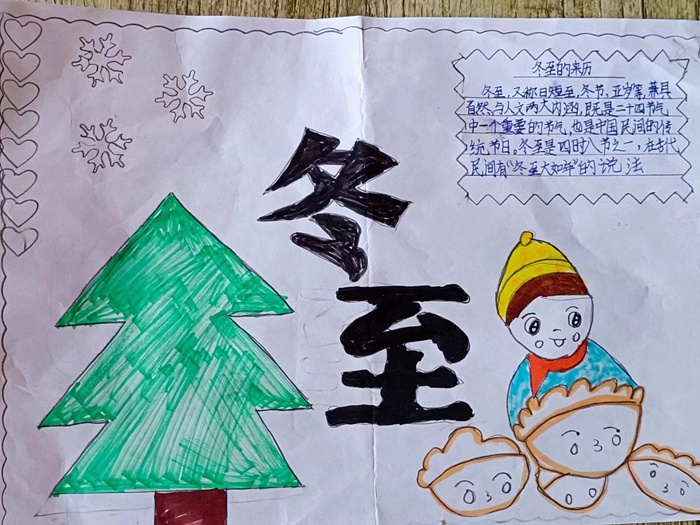 冬至的来历
冬至，又称日短至，冬节、亚岁等，兼具
自然与人文两大内涵，既是二十四节气
中一个重要的节气，也是中国民间的传
统节日。冬至是四时八节之一，在古代
民间有“冬至大如年”的说法
冬
至